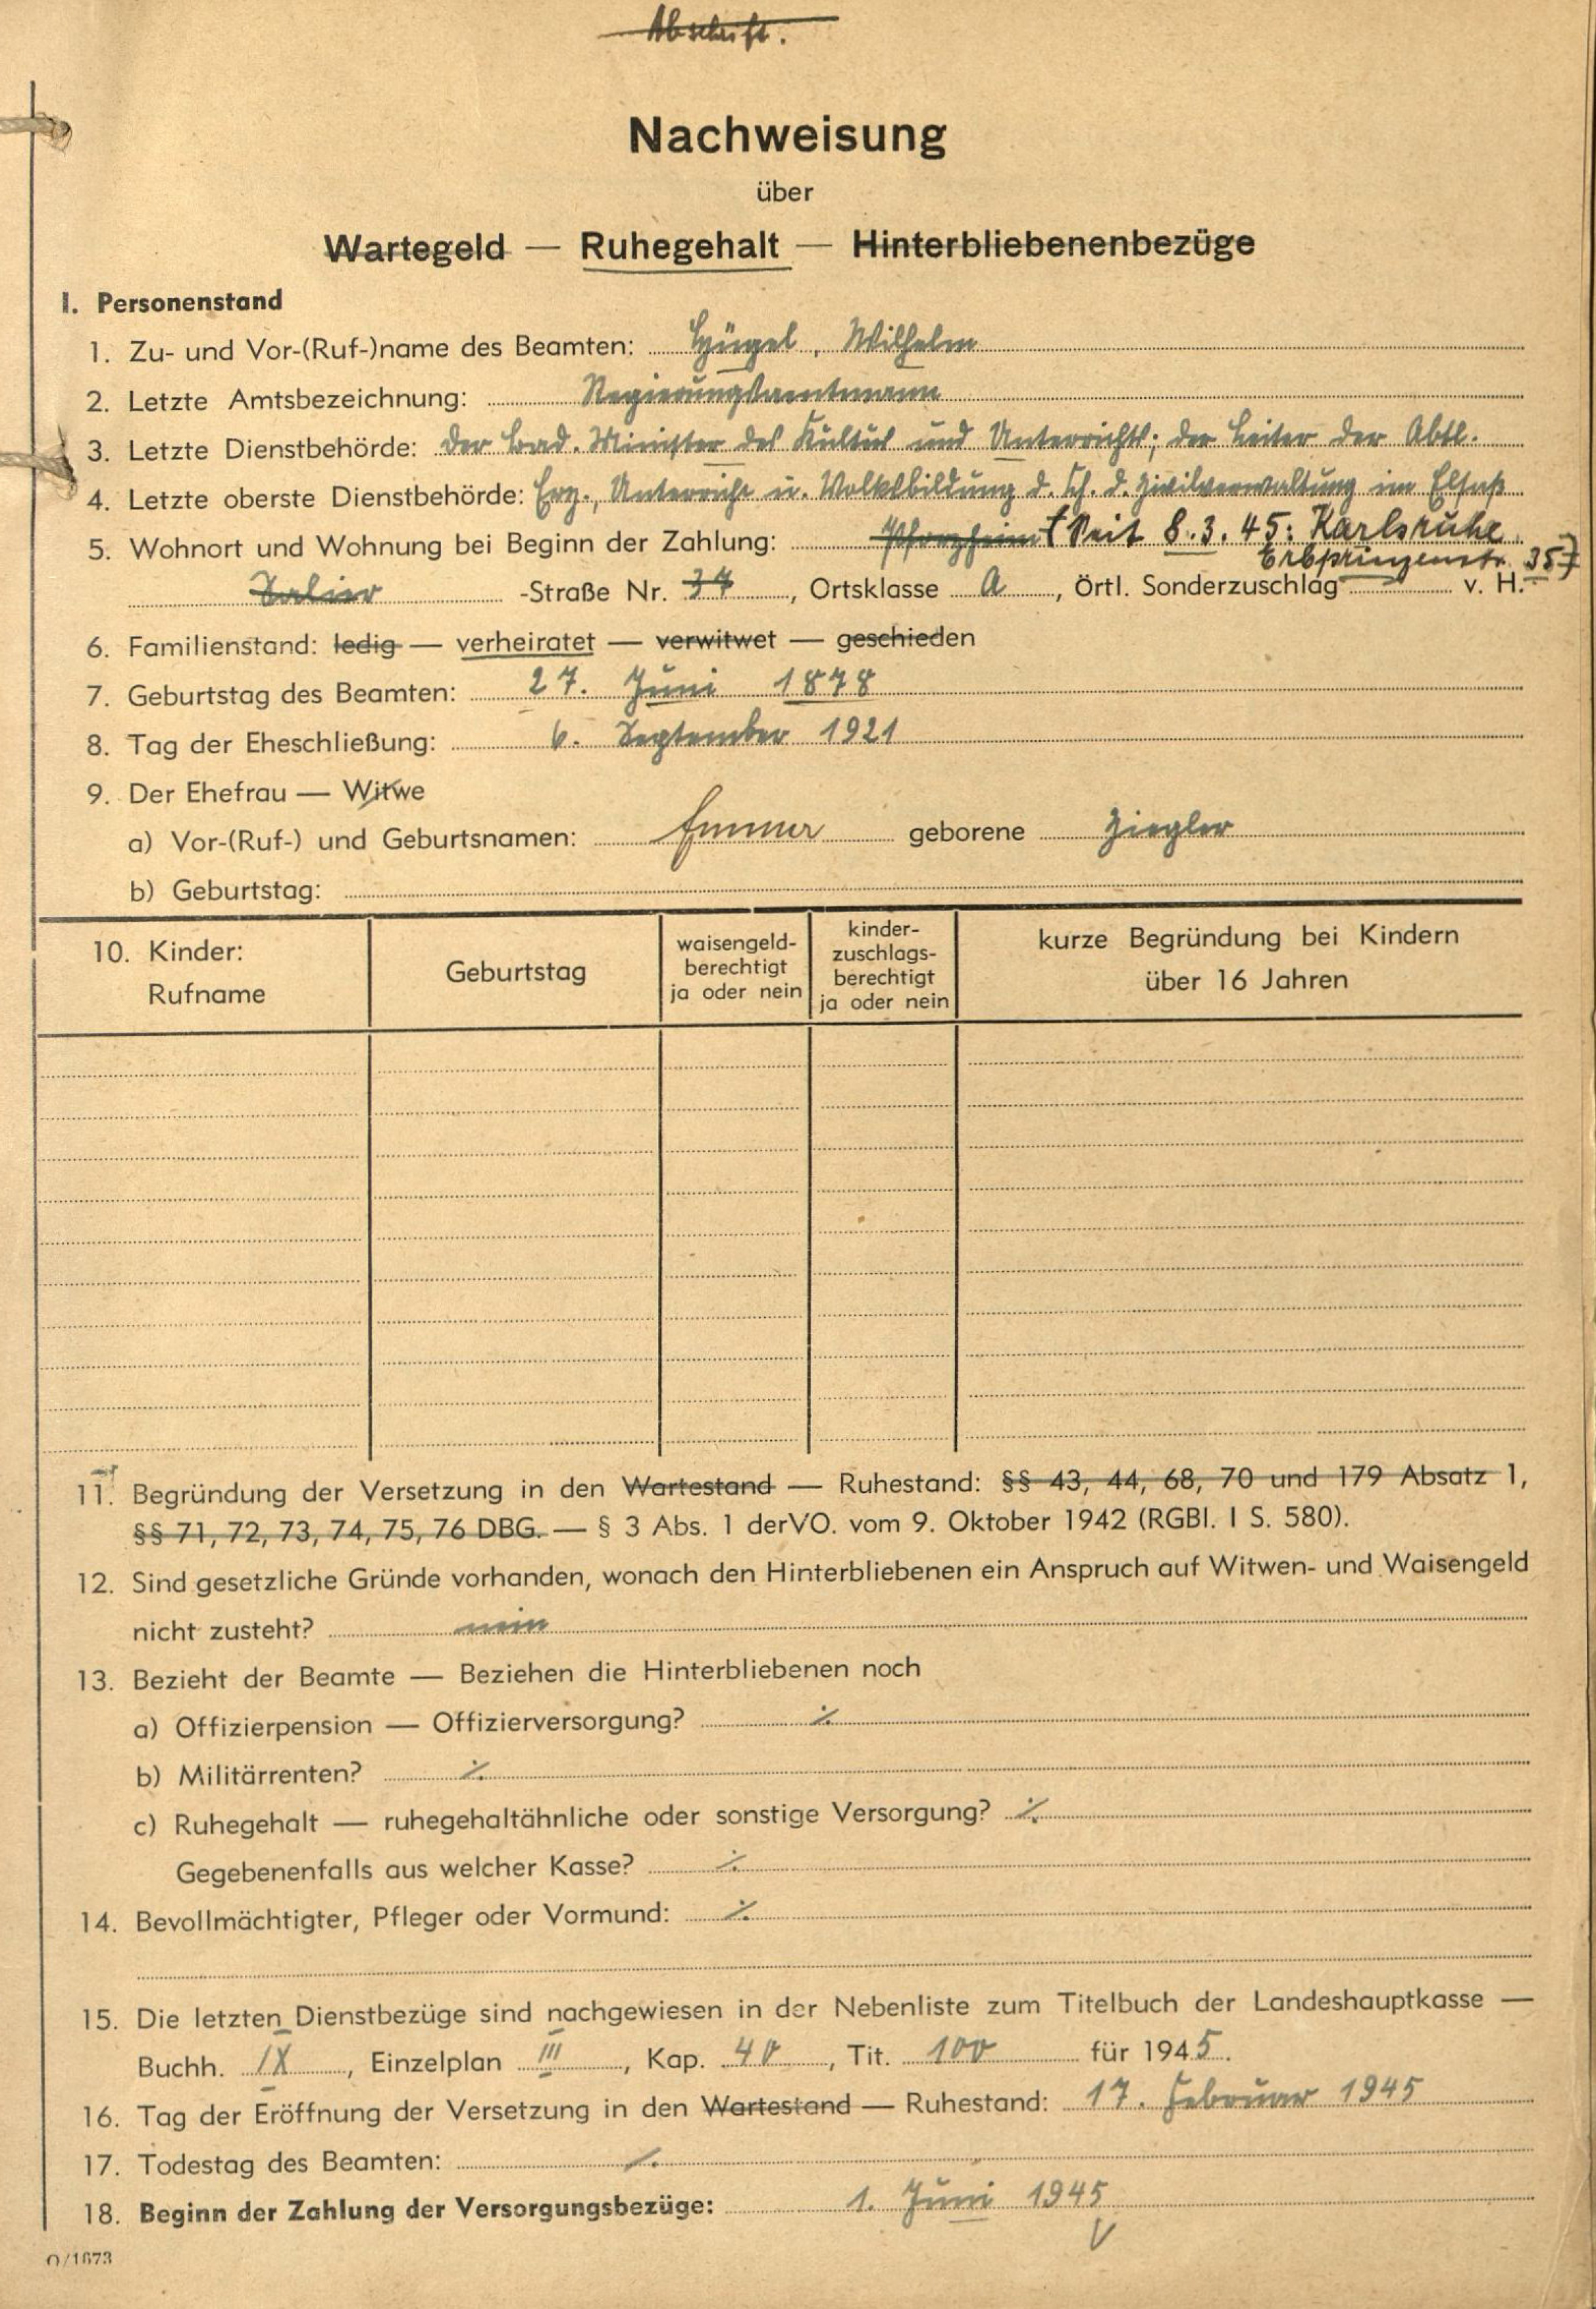 Abschrift.
Nachweisung
über
Wartegeld — Ruhegehalt — Hinterbliebenenbezüge
I. Personenstand
1. Zu- und Vor-(Ruf-)name des Beamten: Hügel, Wilhelm
2. Letzte Amtsbezeichnung: Regierungsamtmann
3. Letzte Dienstbehörde: Der Bad. Minister des Kultus und Unterrichts; der Leiter der Abtl.
4. Letzte oberste Dienstbehörde: Erz., Unterricht u. Volksbildung d. Ch. d. Zivilverwaltung im Elsaß
5. Wohnort und Wohnung bei Beginn der Zahlung: Pforzheim (Seit 8.3.45: Karlsruhe
Erbprinzenstr. 35)
Salier -Straße Nr. 37, Ortsklasse A, Örtl. Sonderzuschlag — v. H.
6. Familienstand: ledig — verheiratet — verwitwet — geschieden
7. Geburtstag des Beamten: 27. Juni 1878
8. Tag der Eheschließung: 6. September 1921
9. Der Ehefrau — Witwe
a) Vor-(Ruf-) und Geburtsnamen: Emma geborene Ziegler
b) Geburtstag:
10. Kinder: Rufname
Geburtstag
waisengeld-
berechtigt
ja oder nein
kinder-
zuschlags-
berechtigt
ja oder nein
kurze Begründung bei Kindern
über 16 Jahren
11. Begründung der Versetzung in den Wartestand — Ruhestand: §§ 43, 44, 68, 70 und 179 Absatz 1,
§§ 71, 72, 73, 74, 75, 76 DBG. — § 3 Abs. 1 derVO. vom 9. Oktober 1942 (RGBl. I S. 580).
12. Sind gesetzliche Gründe vorhanden, wonach den Hinterbliebenen ein Anspruch auf Witwen- und Waisengeld
nicht zusteht? nein
13. Bezieht der Beamte — Beziehen die Hinterbliebenen noch
a) Offizierpension — Offizierversorgung? ./.
b) Militärrenten? ./.
c) Ruhegehalt — ruhegehaltähnliche oder sonstige Versorgung? ./.
Gegebenenfalls aus welcher Kasse? ./.
14. Bevollmächtigter, Pfleger oder Vormund: ./.
15. Die letzten Dienstbezüge sind nachgewiesen in der Nebenliste zum Titelbuch der Landeshauptkasse —
Buchh. IX, Einzelplan III, Kap. 40, Tit. 100 für 1945.
16. Tag der Eröffnung der Versetzung in den Wartestand — Ruhestand: 17. Februar 1945
17. Todestag des Beamten: ./.
18. Beginn der Zahlung der Versorgungsbezüge: 1. Juni 1945
O/1673